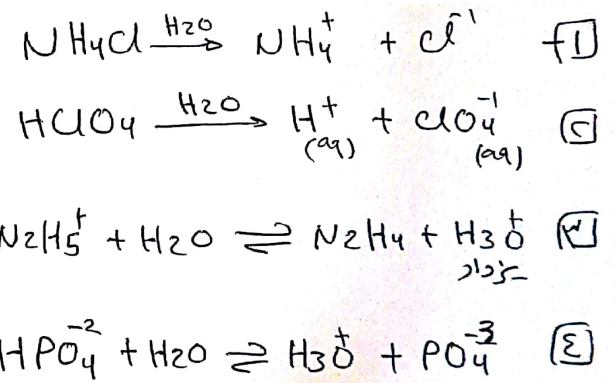 NH4Cl H2O→ NH4+ + Cl-1 ١
HClO4 H2O→ H+(aq) + ClO4-1(aq) ٢
N2H5+ + H2O ⇌ N2H4 + H3O+ ٣
تزداد
HPO4-2 + H2O ⇌ H3O+ + PO4-3 ٤